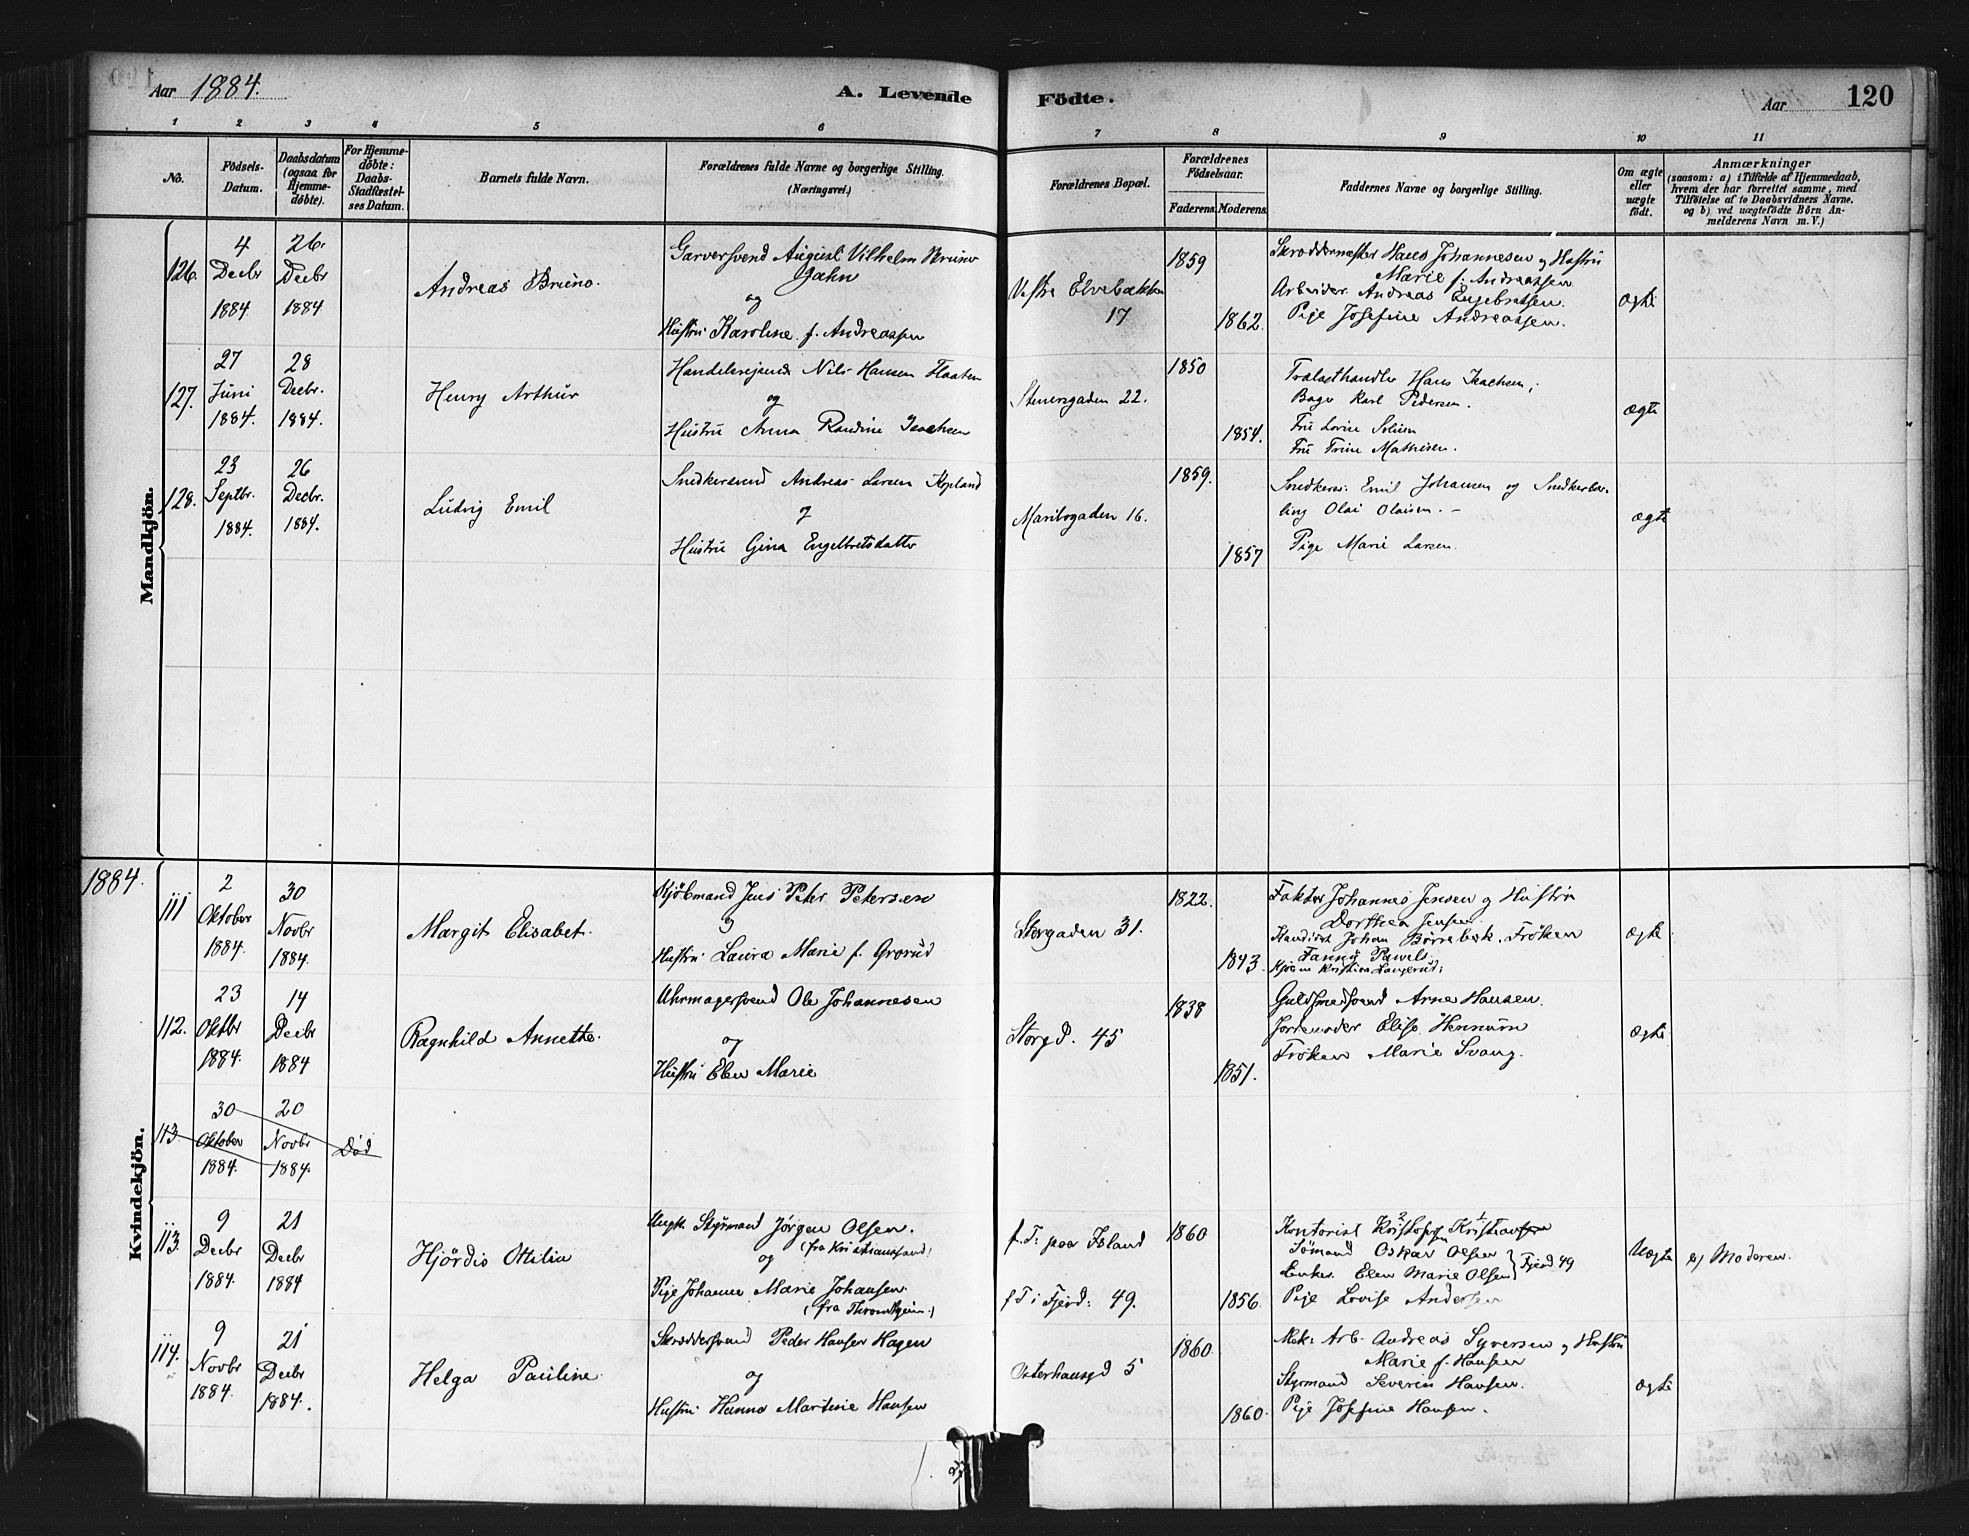 Aar 1884.
A. Levende Födte.
Aar 120
1 2 3 4 5 6 7 8 9 10 11
No.
Födsels-
Datum.
Daabsdatum
(ogsaa for
Hjemme-
döbte).
For Hjemme-
döbte:
Daabs-
Stadfæstel-
ses Datum.
Barnets fulde Navn.
Forældrenes fulde Navne og borgerlige Stilling.
(Næringsvei.)
Forældrenes Bopæl.
Forældrenes
Födselsaar.
Faderens. Moderens.
Faddernes Navne og borgerlige Stilling.
Om ægte
eller
uægte
født.
Anmærkninger
(saasom: a) i Tilfælde af Hjemmedaab,
hvem der har forrettet samme, med
Tilföielse af to Daabsvidners Navne,
og b) ved uægtefödte Börn An-
melderens Navn m. V.)
Mandkjön.
126.
4
Decbr
1884
26
Decbr
1884
Andreas Bruno.
Garversvend August Vilhelm Bruno
Jahn
og
Hustru Karoline f. Andreassen
Vestre Elvebakken
17
1859
1862.
Skræddermester Hans Johannesen og Hustru
Marie f. Andreassen
Arbeider Andreas Engebretsen.
Pige Josefine Andreassen.
ægte
127.
27
Juni
1884.
28
Decbr.
1884.
Henry Arthur
Handelsreisende Nils Hansen Flaaten
og
Hustru Anna Randine Isachsen
Stenersgaden 22.
1850
1854.
Trælasthandler Hans Isachsen;
Bager Karl Pedersen.
Fru Lovise
Fru Trine Mathisen.
ægte
128.
23
Septbr.
1884.
26
Decbr.
1884.
Ludvig Emil
Snedkersvend Andreas Larsen
og
Hustru Gina Engelbretsdatter
Maribogaden 16.
1859.
1857
Snedkersv. Emil Johansen og Snedkerlær-
ling Olai Olaisen. -
Pige Marie Larsen.
ægte
1884.
Kvindekjön.
111
2
Oktober
1884.
30
Novbr
1884.
Margit Elisabet.
Kjöbmand Jens Peter Petersen
og
Hustru Laura Marie f. Grorud
Storgaden 31.
1822.
1843.
Faktor Johannes Jensen og Hustru
Dorthea Jensen.
Kandidat Johan Börrebek. Fröken
Fanny Pawels.
Kjöbm Kristian Langerud;
ægte
112.
23
Oktbr
1884.
14
Decbr
1884
Ragnhild Annette.
Uhrmagersvend Ole Johannesen
og
Hustru Elen Marie
Storgd. 45
1838
1851.
Guldsmedsvend Arne Hansen.
Jordemoder Elise Hennum
Fröken Marie Svang.
ægte
113.
30
Oktober
1884.
20
Novbr
1884.
Död
113.
9
Decbr
1884.
21
Decbr
1884
Hjördis Ottilia
Ungk. Styrmand Jörgen Olsen.
(fra Kristianssand)
og
Pige Johanne Marie Johansen
(fra Throndhjem.)
f.T. paa Island
f T i Fjerd: 49.
1860
1856.
Kontorist Kristofersen Kristian
Sömand Oskar Olsen
Enke Elen Marie Olsen } Fjerd 49
Pige Lovise Andersen
Uægte
b) Moderen.
114.
9
Novbr
1884.
21
Decbr
1884.
Helga Pauline.
Skræddersvend Peder Hansen Hagen
og
Hustru Hanna Martine Hansen
Osterhausgd 5
1860.
1860.
Mek. Arb. Andreas Syversen og Hustru
Marie f. Hansen
Styrmand Severin Hansen.
Pige Josefine Hansen.
ægte